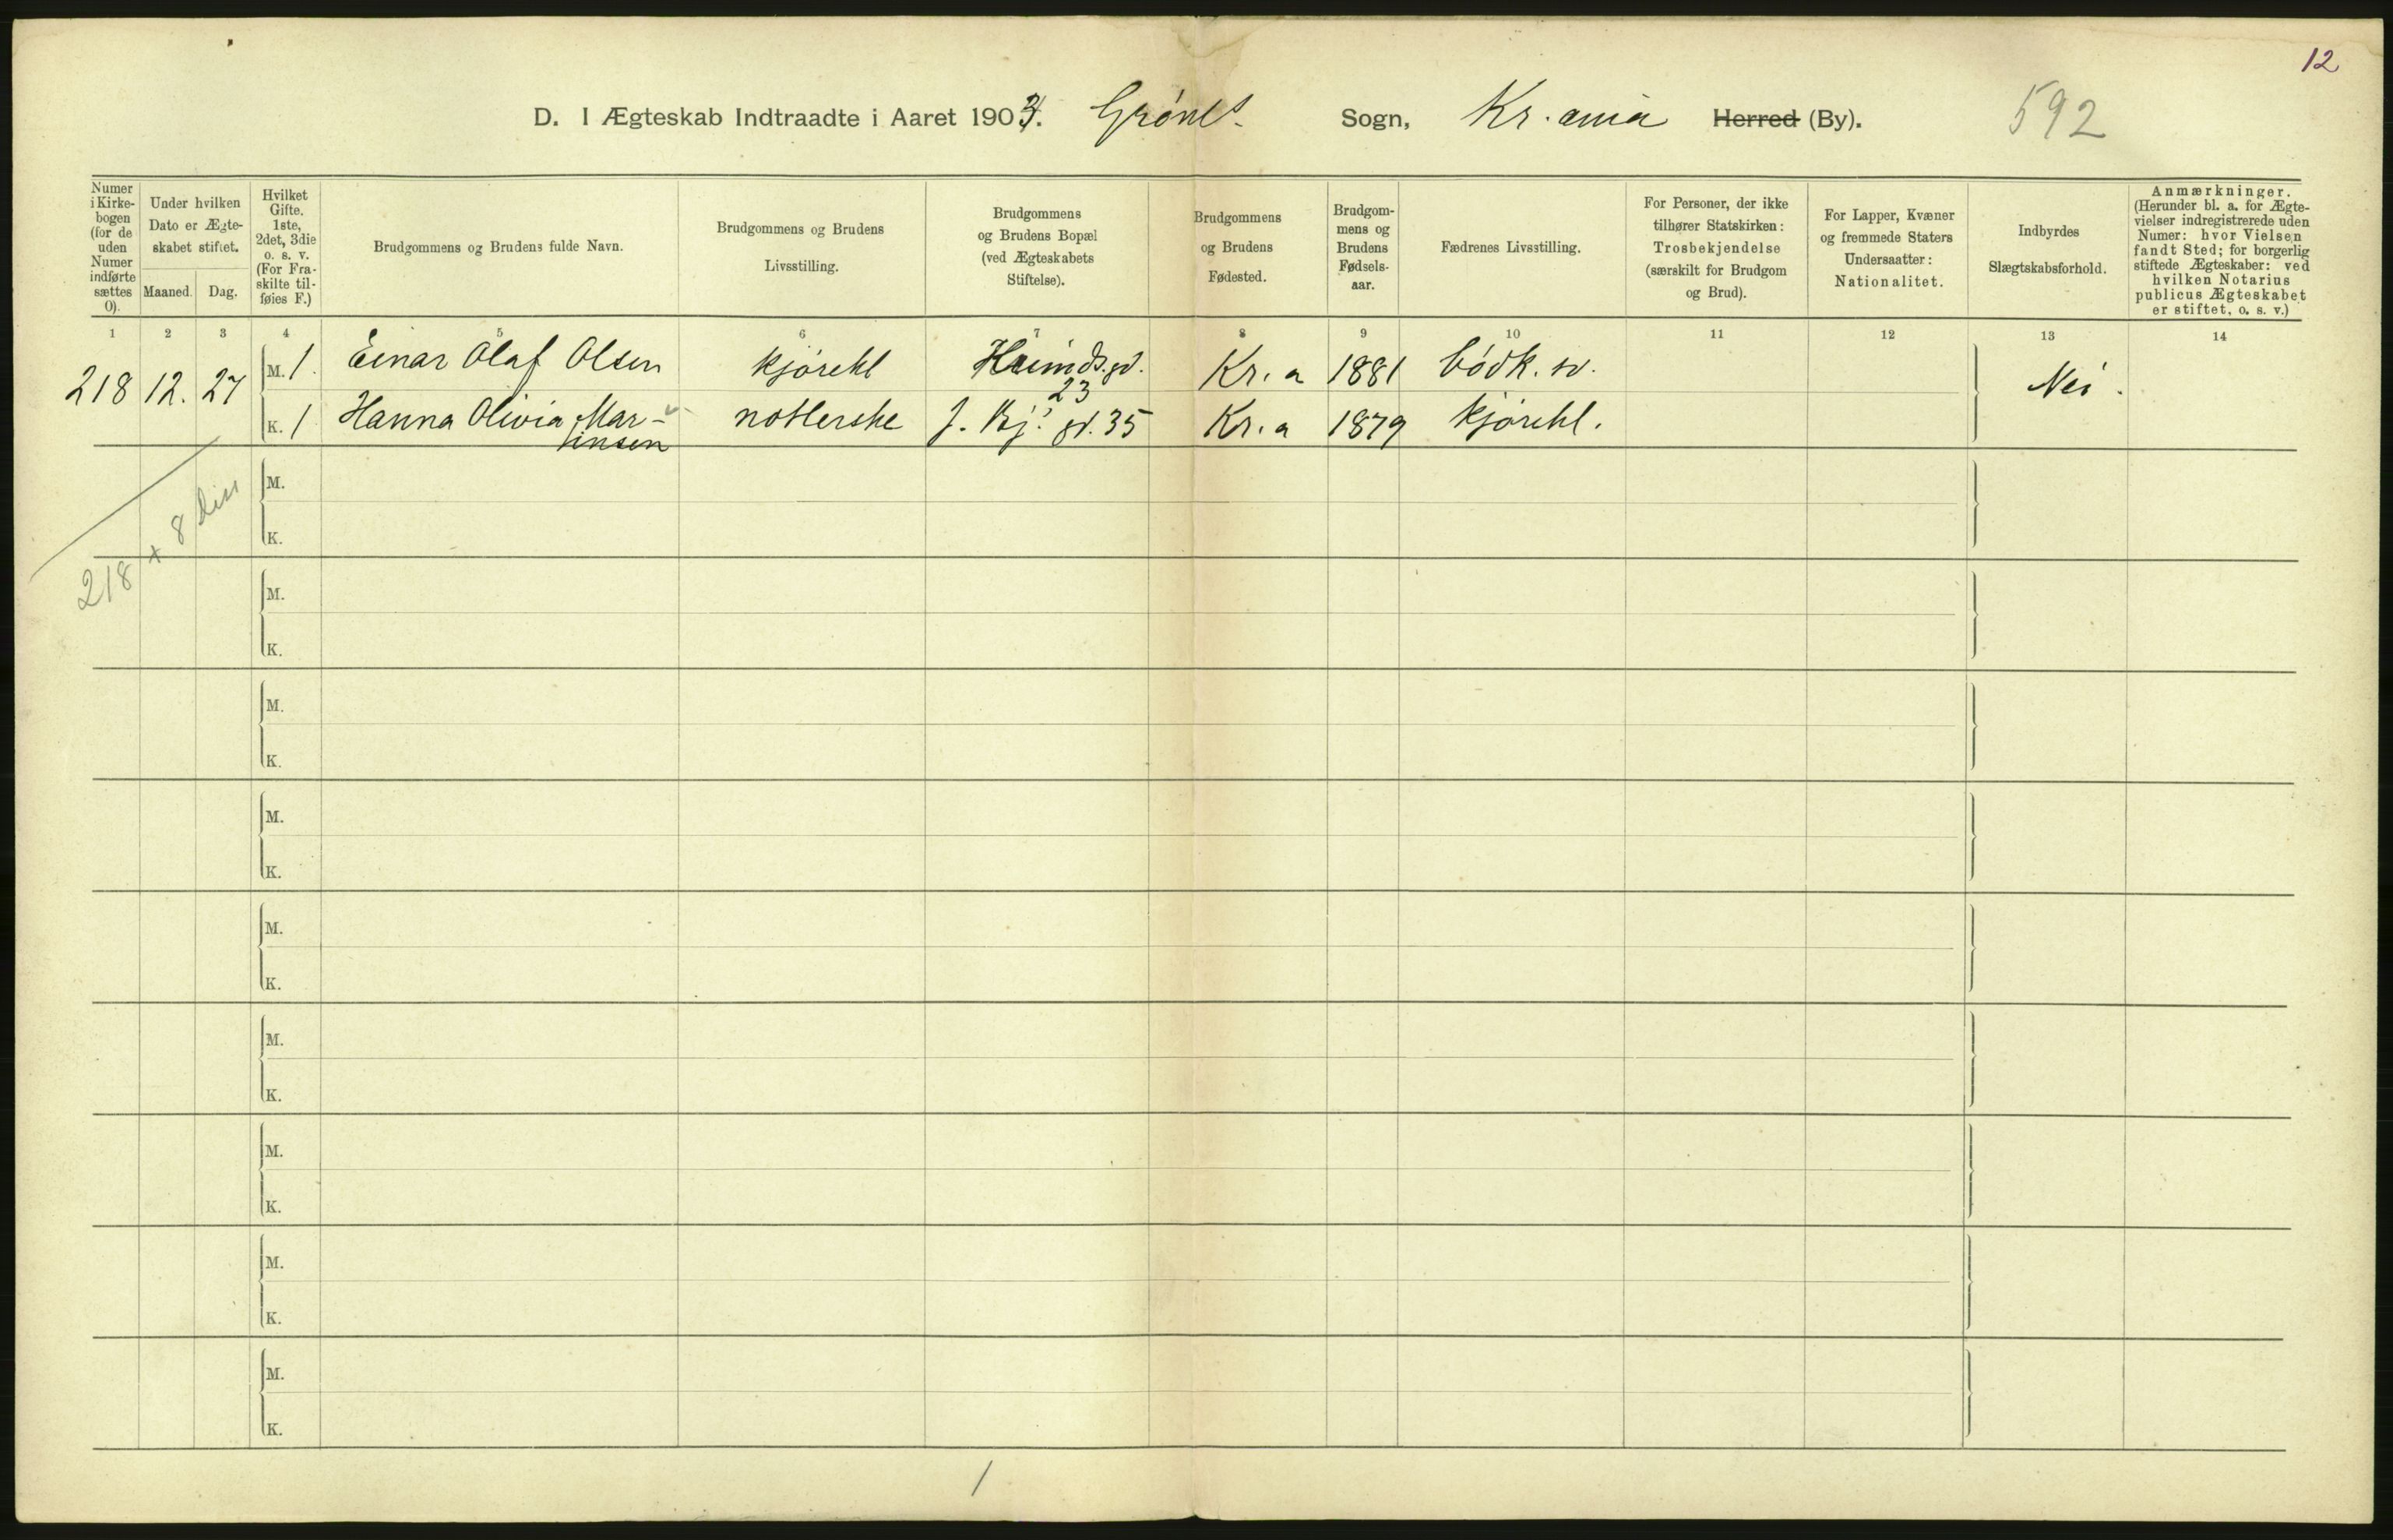 12
D. I Ægteskab Indtraadte i Aaret 1903. Grønl. Sogn, Kr.ania Herred (By). 592
Numer i Kirke-bogen (for de uden Numer indførte sættes 0).
Under hvilken Dato er Ægte-skabet stiftet.
Maaned. Dag.
Hvilket Gifte. 1ste, 2det, 3die o. s. v. (For Fra-skilte til-føies F.)
Brudgommens og Brudens fulde Navn.
Brudgommens og Brudens Livsstilling.
Brudgommens og Brudens Bopæl (ved Ægteskabets Stiftelse).
Brudgommens og Brudens Fødested.
Brudgom-mens og Brudens Fødsels-aar.
Fædrenes Livsstilling.
For Personer, der ikke tilhører Statskirken: Trosbekjendelse (særskilt for Brudgom og Brud).
For Lapper, Kvæner og fremmede Staters Undersaatter: Nationalitet.
Indbyrdes Slægtskabsforhold.
Anmærkninger. (Herunder bl. a. for Ægte-vielser indregistrerede uden Numer: hvor Vielsen fandt Sted; for borgerlig stiftede Ægteskaber: ved hvilken Notarius publicus Ægteskabet er stiftet, o. s. v.)
1 2 3 4 5 6 7 8 9 10 11 12 13 14
218 12. 27 M. 1. Einar Olaf Olsen kjørekl Heimds.gd. 23 Kr.a 1881 bødk. sv. Nei.
K. 1 Hanna Olivia Mar-
tinsen
notlerske J. Bj. gd. 35 Kr.a 1879 kjørekl.
M.
K.
218 + 8 diss
M.
K.
M.
K.
M.
K.
M.
K.
M.
K.
M.
K.
M.
K.
M.
K.
1